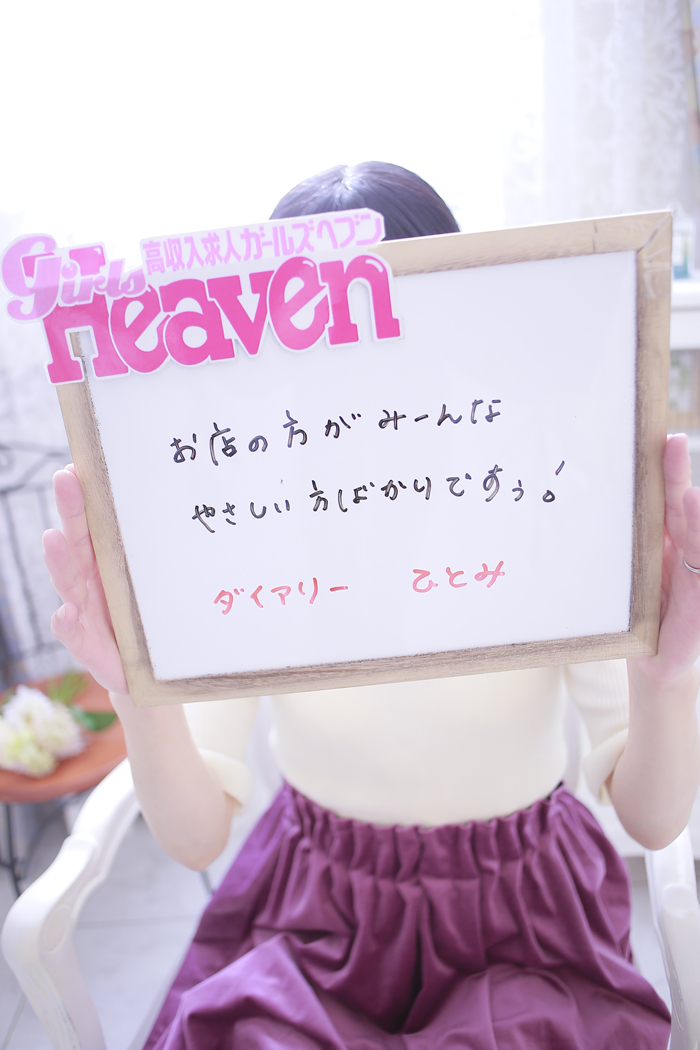 高収入求人ガールズヘブン
Girls
Heaven
お店の方がみーんな
やさしい方ばかりですぅ!
ダイアリー ひとみ